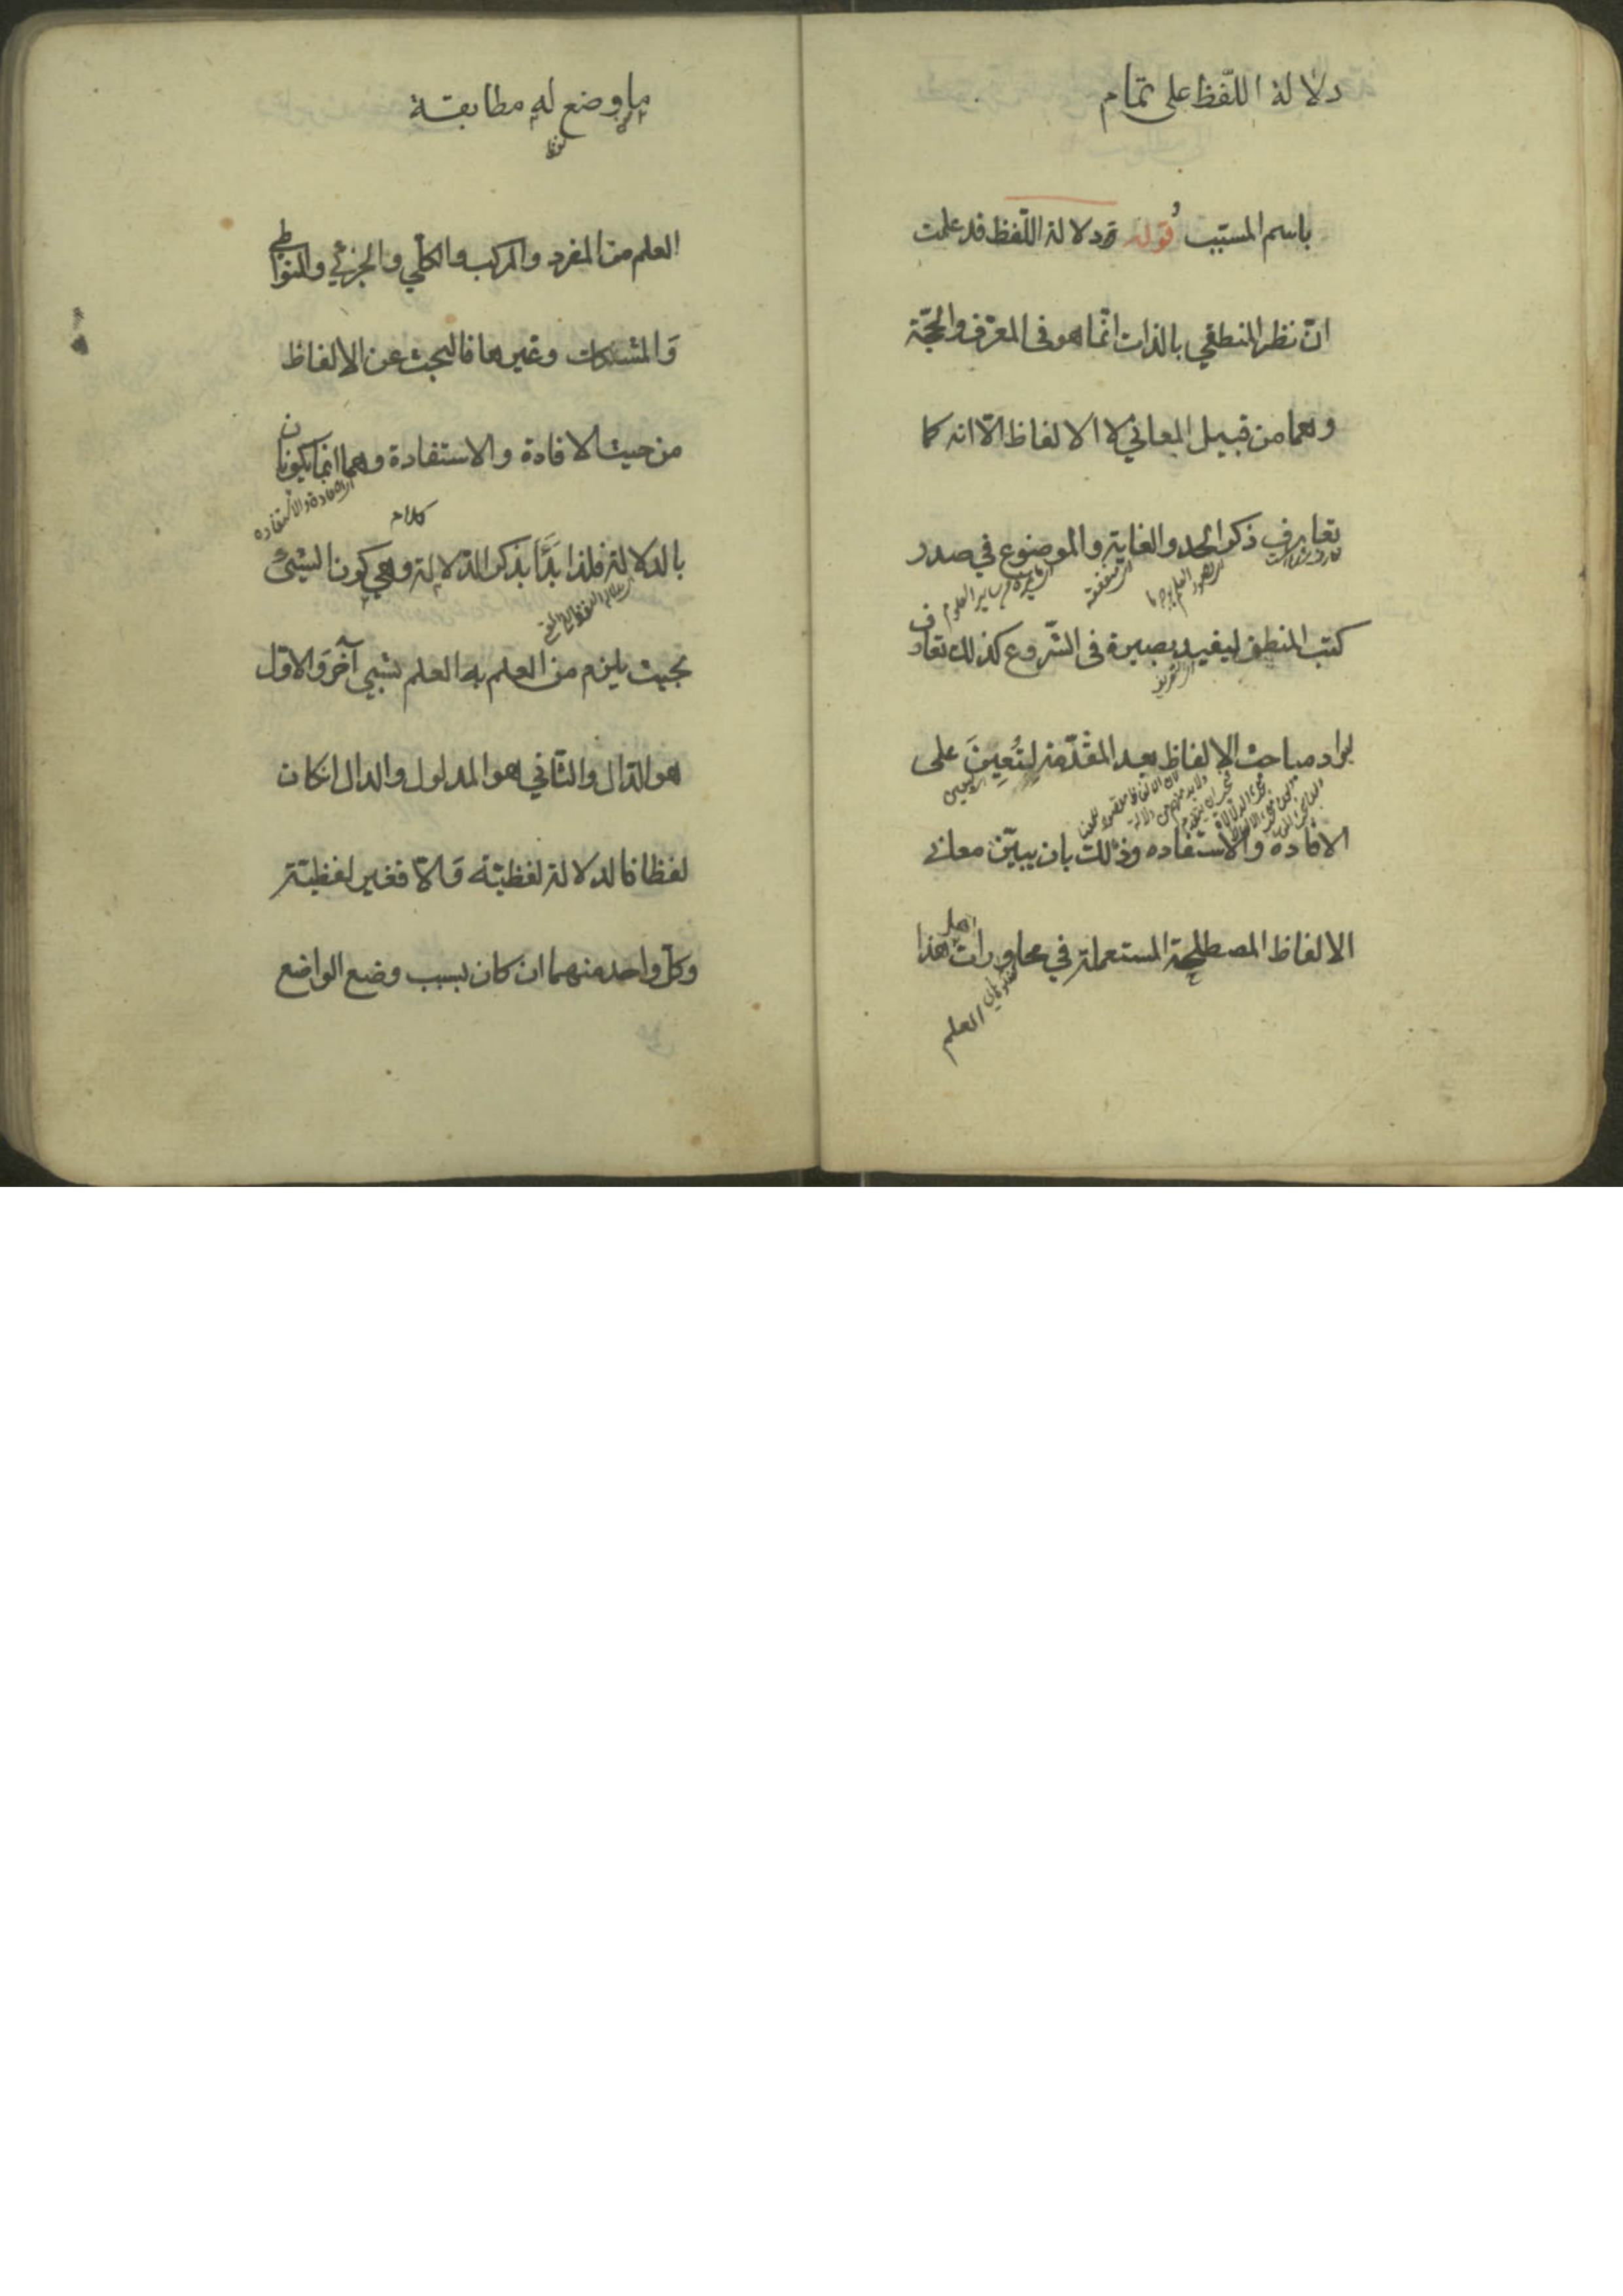 دلالة اللّفظ على تمام
باسم المسبّب قوله ودلالة اللّفظ قد علمت
انّ نظر المنطقي بالذات انّما هو في المعرّف والحجّة
وهما من قبيل المعاني لا الالفاظ الّا انه كما
تعارف ذكر الحد والغاية والموضوع في صدر
كتب المنطق ليفيد بصيرة في الشّروع كذلك تعارف
ايراد مباحث الالفاظ بعد المقدّمة لتُعِينَ على
الافاده والاستفاده وذلك بان يبيّن معاني
الالفاظ المصطلحة المستعملة في محاورات اهل هذا
العلم
ما وضع له مطابقة
العلم من المفرد والمركب والكلّي والجزئي والمتواطي
وَالمشكك وغيرها فالبحث عن الالفاظ
من حيث الافادة والاستفادة وهما انما يكونان
اى الافادة والاستفاده
كلام
بالدلالة فلذا بَدَأ بذكر الدّلالة وهي كون الشيئ
بحيث يلزم من العلم به العلم بشيي آخَر وَالاوّل
هو الدّال والثّاني هو المدلول والدال انكان
لفظا فالدلالة لفظيّة وَالّا فغير لفظيّة
وكلّ واحد منهما ان كان بسبب وضع الواضع